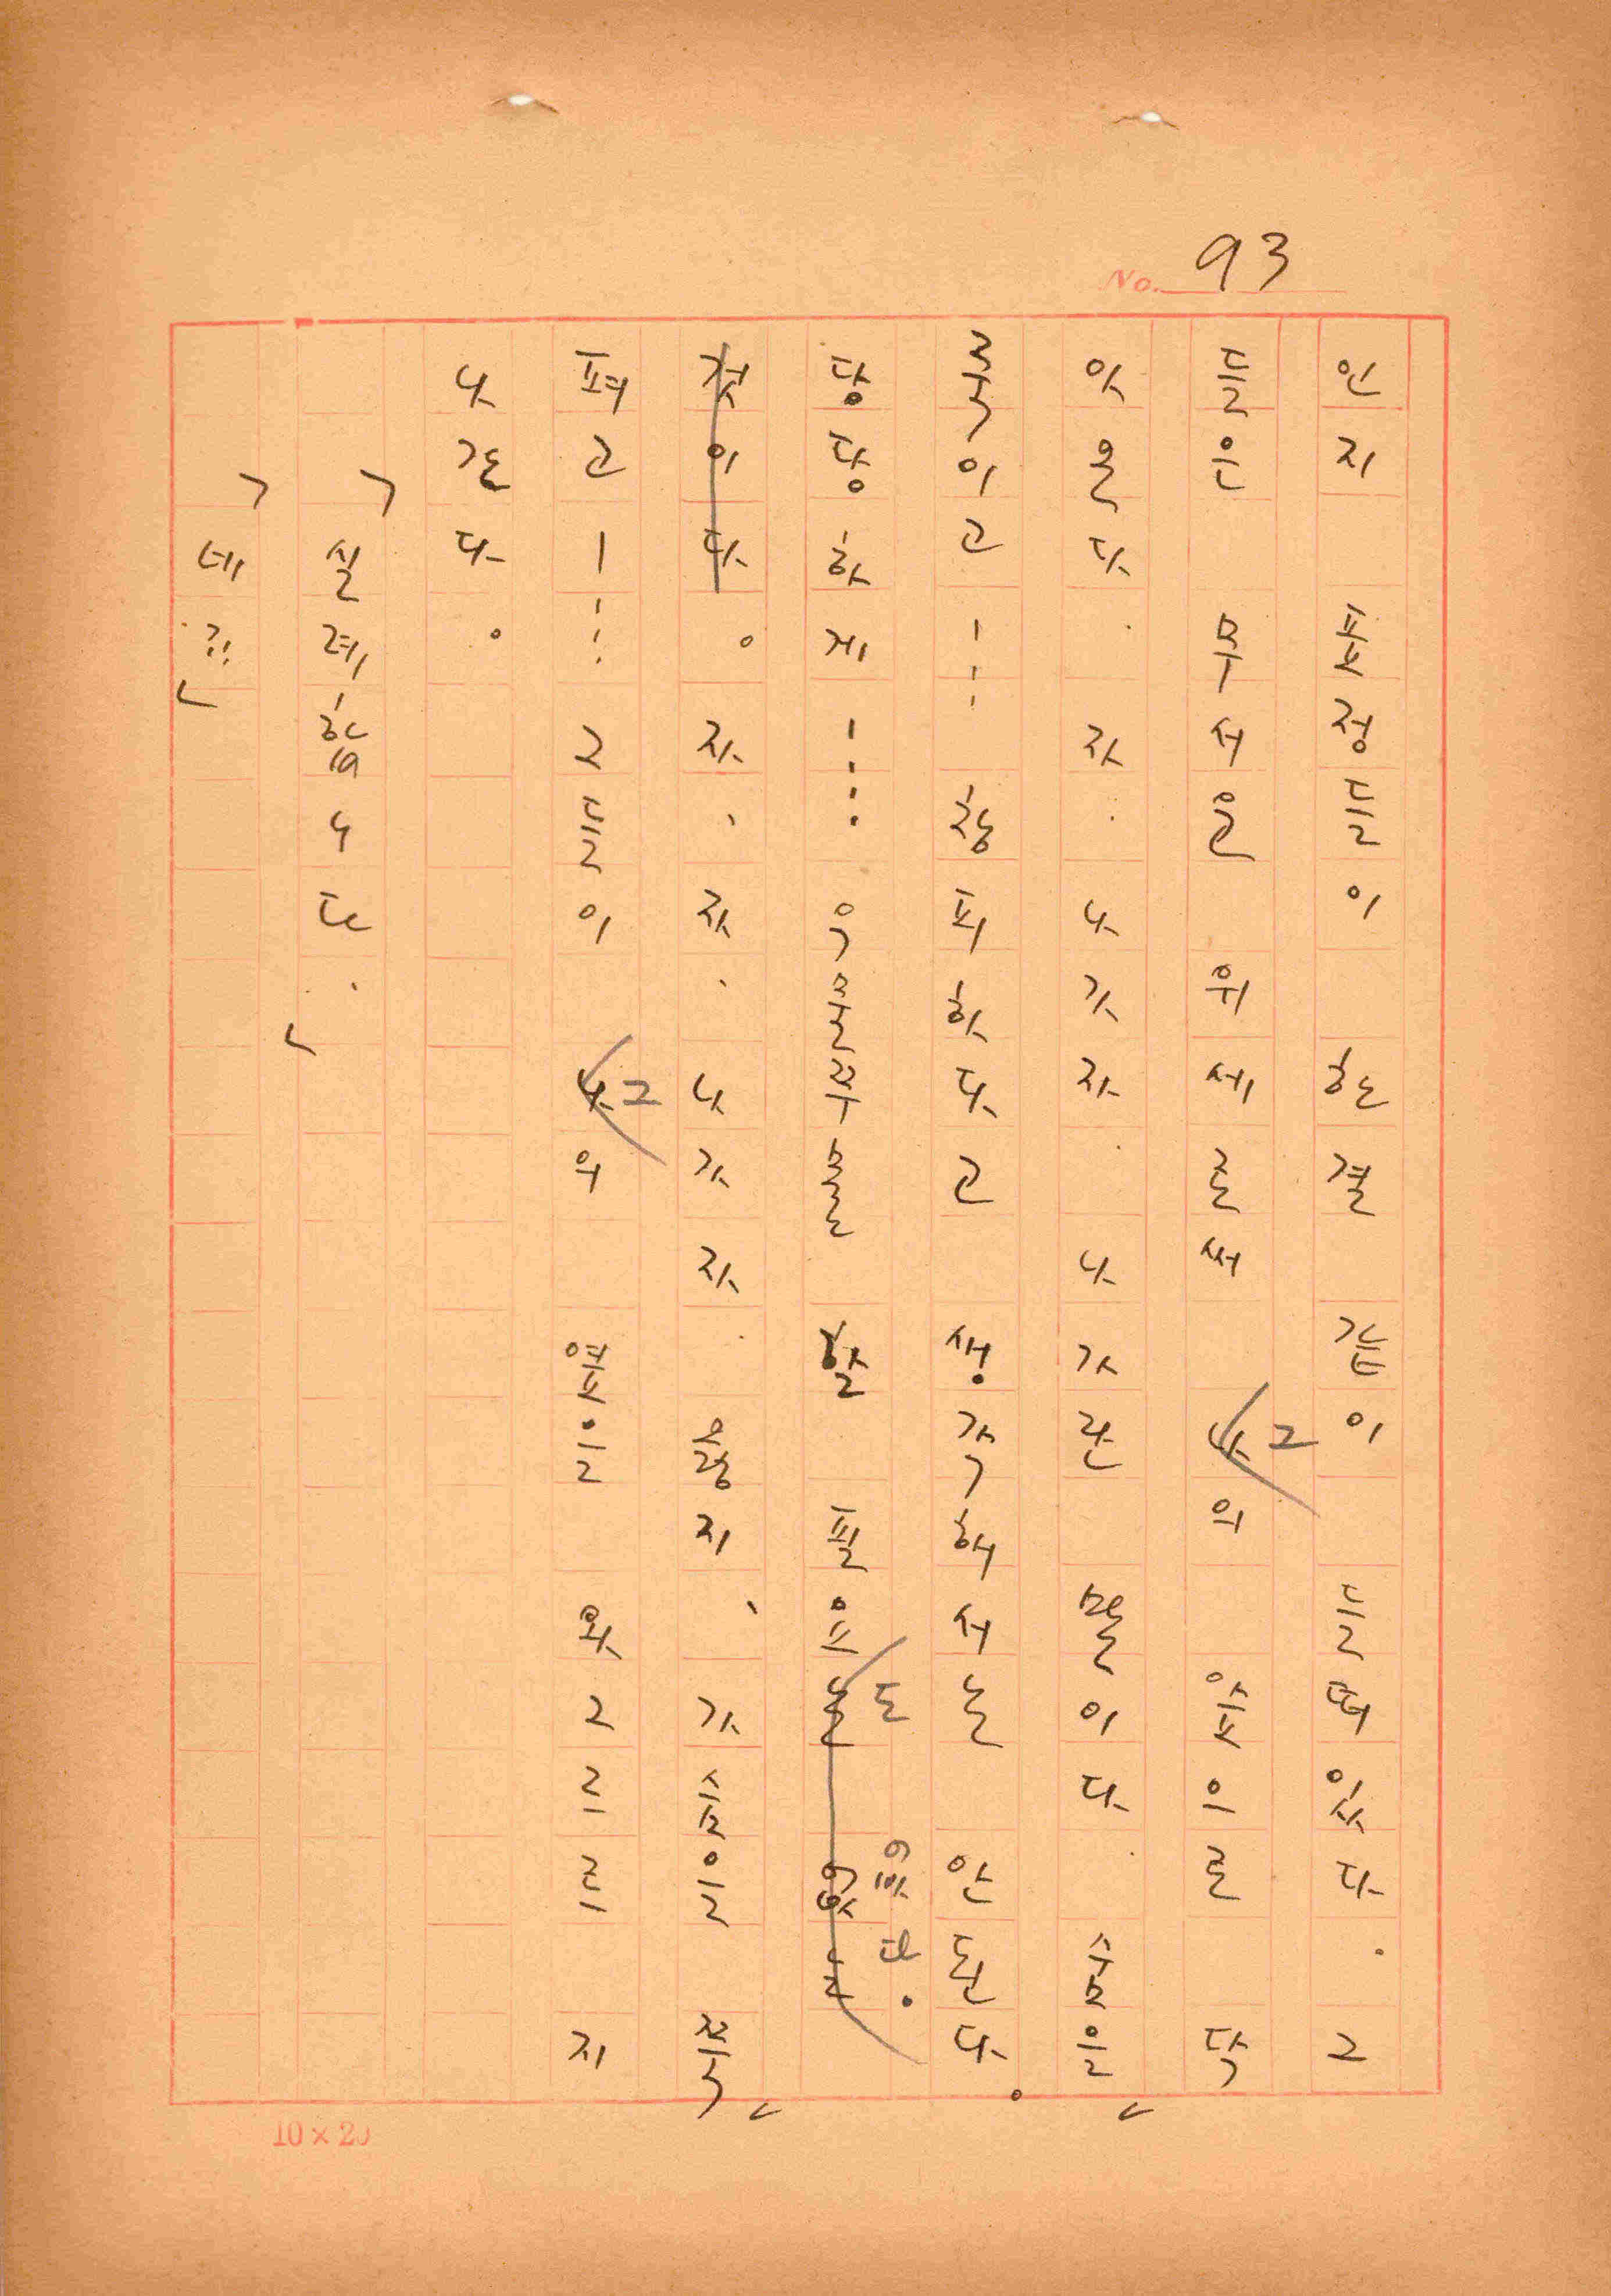 No. 93
인지 표정들이 한결 같이 들떠있다. 그
들은 무서운 위세로써 나그의 앞으로 닥
아온다. 자. 나가자. 나가란 말이다. 숨을
죽이고…… 창피하다고 생각해서는 안된다.
당당하게…… 우물쭈물 할 필요는 없는
도 없다.
것이다. 자, 자, 나가자. 옳지, 가슴을 쭉
펴고…… 그들이 나그의 옆을 와그르르 지
나간다.
「실례합니다.」
「네??」
10×20